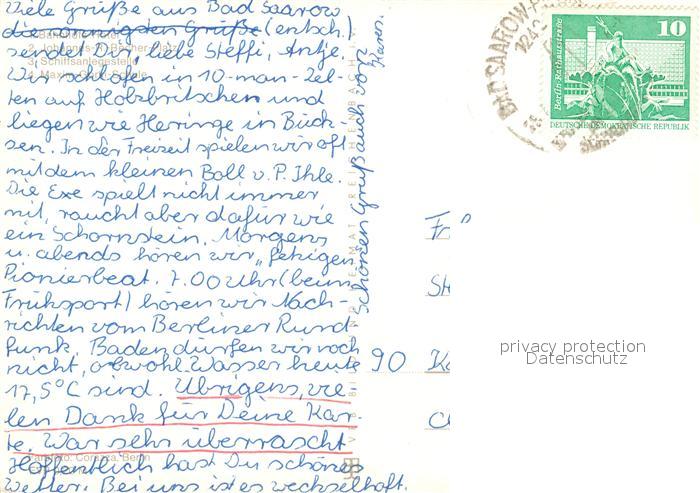 Viele Grüße aus Bad Saarow
die sonnigen Grüße (entsch.)
sendet Dir, liebe Steffi, Antje.
Wir schlafen in 10-man-Zel-
ten auf Holzbritschen und
liegen wie Heringe in Büch-
sen. In der Freizeit spielen wir oft
mit dem kleinen Ball v. P. Ihle.
Die Exe spielt nicht immer
mit, raucht aber dafür wie
ein Schornstein. Morgens
u. abends hören wir „fetzigen
Pionierbeat. 7.00 Uhr (beim
Frühsport) hören wir Nach-
richten vom Berliner Rund-
funk. Baden dürfen wir noch
nicht, obwohl Wasser heute
17,5°C sind. Übrigens, vie-
len Dank für Deine Kar-
te. War sehr überrascht
Hoffentlich hast Du schönes
Wetter. Bei uns ist es wechselhaft.
Schönen Gruß auch von
2. Johannes-R.-Becher-Platz
3. Schiffsanlegestelle
4. Maxim-Gorki-Schule
BAD SAAROW-
1242
10
Berlin-Rathausstraße
DEUTSCHE DEMOKRATISCHE REPUBLIK
90
privacy protection
Datenschutz